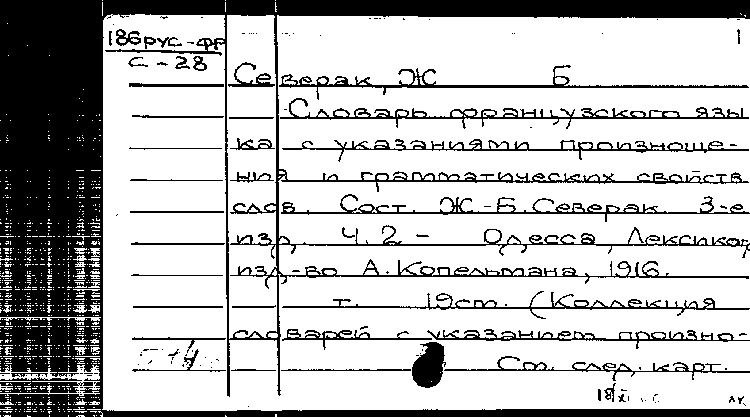 186рус-фр 1
С-28
Северак, Ж Б
Словарь французского язы
ка с указаниями произноше-
ния и грамматических свойств
слов. Сост. Ж.-Б. Северак. 3-е
изд. Ч. 2 - Одесса, Лексикогр
изд-во А. Копельмана, 1916.
т. 19см. (Коллекция
словарей с указанием произно-
См. след. карт.